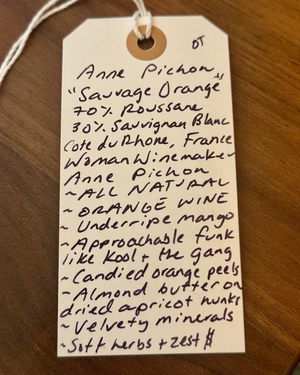 DT
Anne Pichon
"Sauvage Orange"
70% Roussane
30% Sauvignan Blanc
Cote du Rhone, France
Woman Winemaker
Anne Pichon
~ ALL NATURAL
~ ORANGE WINE
~ Underripe mango
~ Approachable funk
like Kool + the Gang
~ Candied orange peels
~ Almond butter on
dried apricot hunks
~ Velvety minerals
~ Soft herbs + zest $